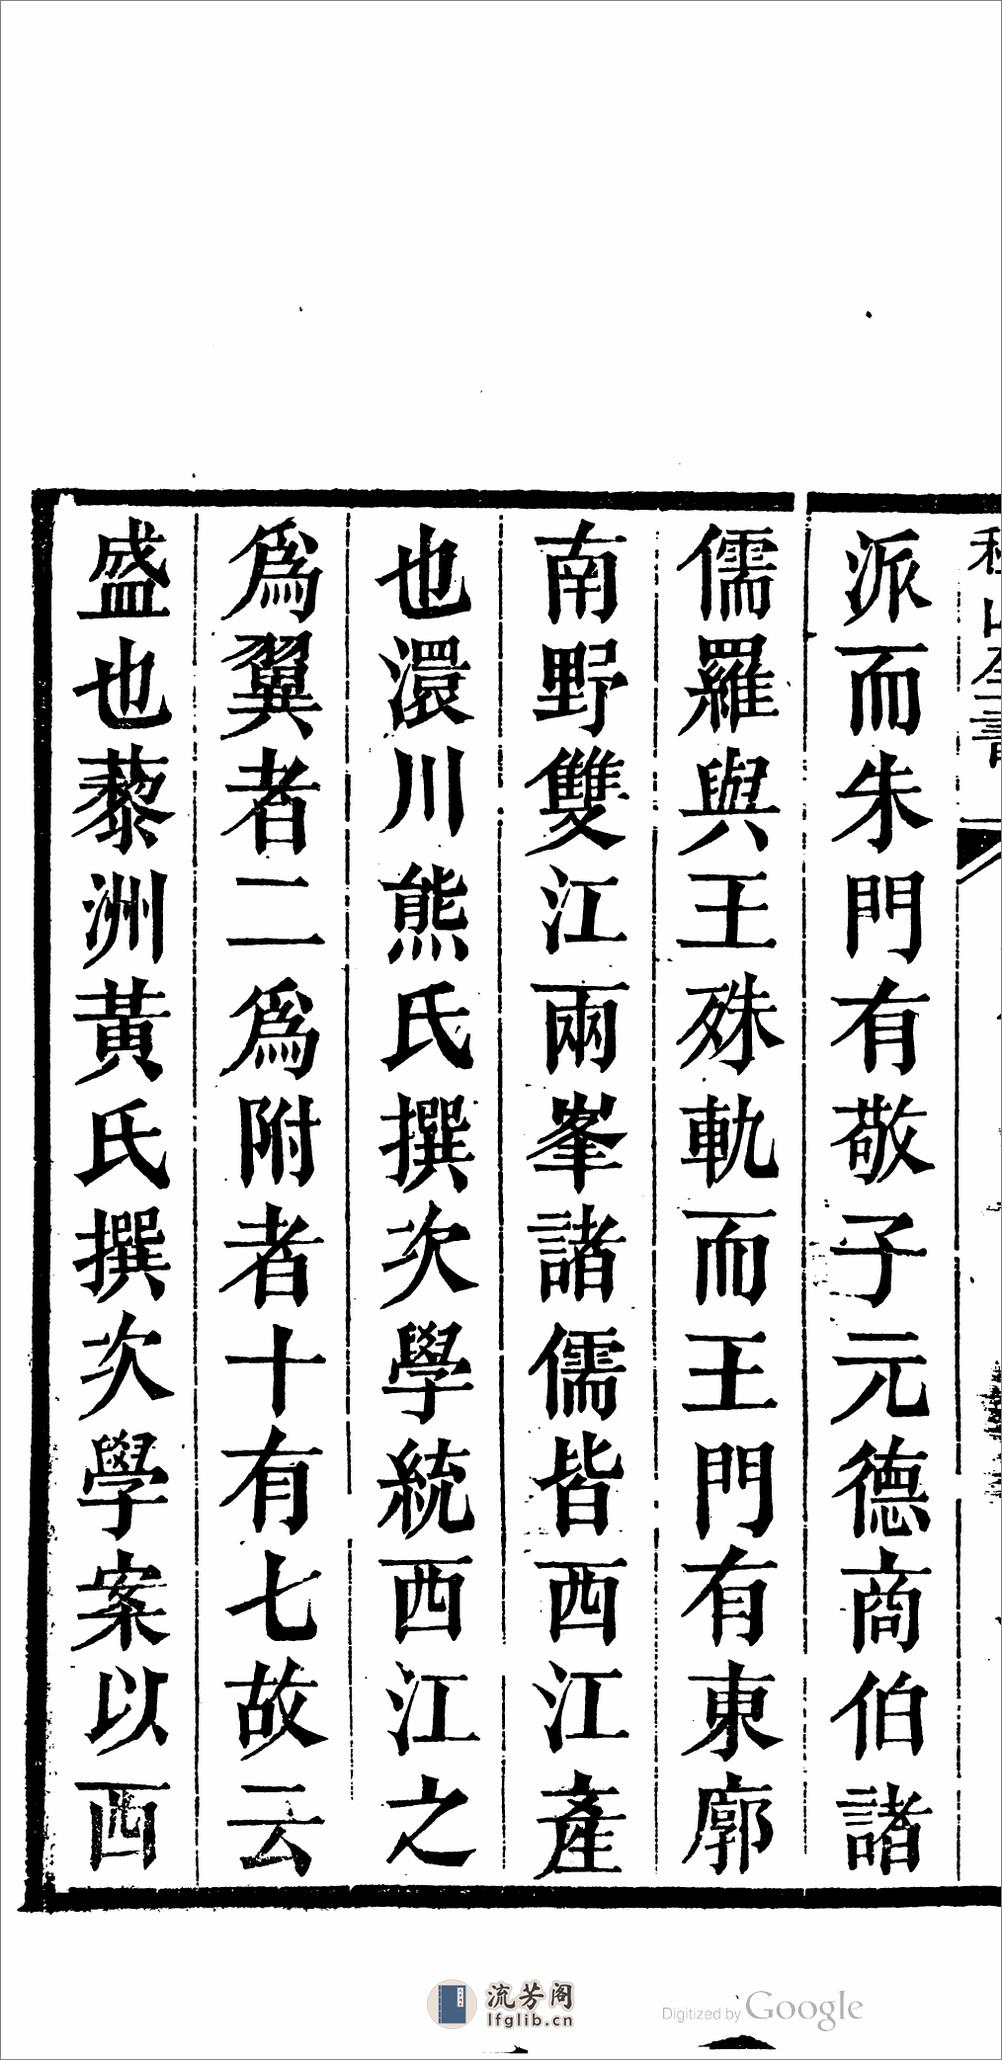 派而朱門有敬子元德商伯諸
儒羅與王殊軌而王門有東廓
南野雙江兩峯諸儒皆西江產
也澴川熊氏撰次學統西江之
爲翼者二爲附者十有七故云
盛也藜洲黃氏撰次學案以西
流芳阁
lfglib.cn
Digitized by Google